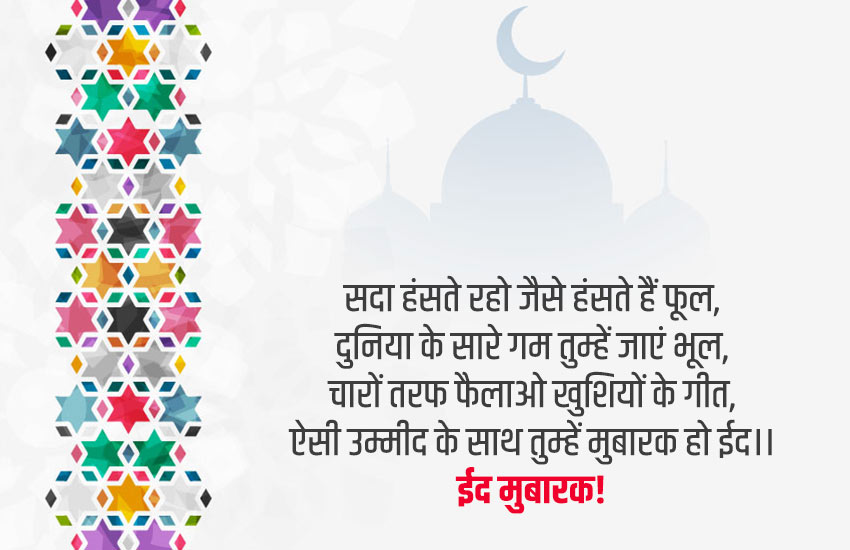 सदा हंसते रहो जैसे हंसते हैं फूल,
दुनिया के सारे गम तुम्हें जाएं भूल,
चारों तरफ फैलाओ खुशियों के गीत,
ऐसी उम्मीद के साथ तुम्हें मुबारक हो ईद।।
ईद मुबारक!